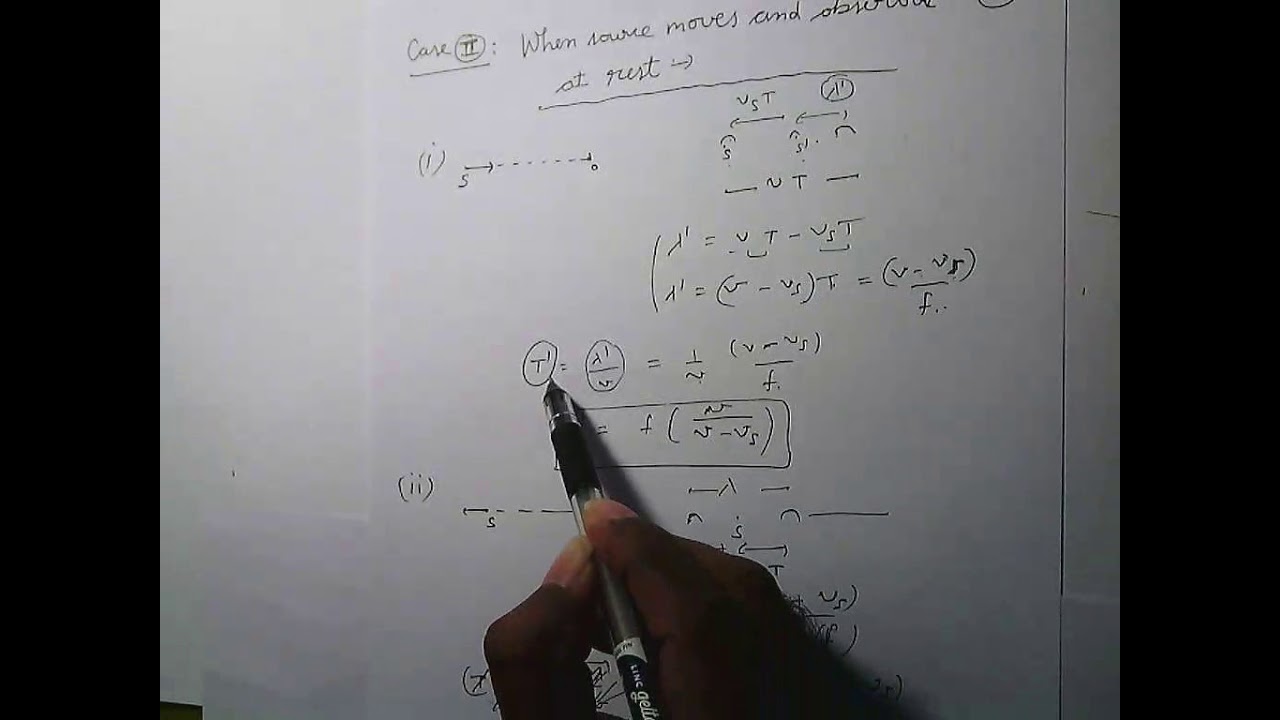 Case II : When source moves and observer
at rest →
v_s T λ'
(i) S o S S'
v T
λ' = v T - v_s T
λ' = (v - v_s) T = (v - v_s) / f
T' = λ'/v = 1/v (v - v_s)/f
= f ( v / (v - v_s) )
(ii) S λ
S
T
v_s)
LINC